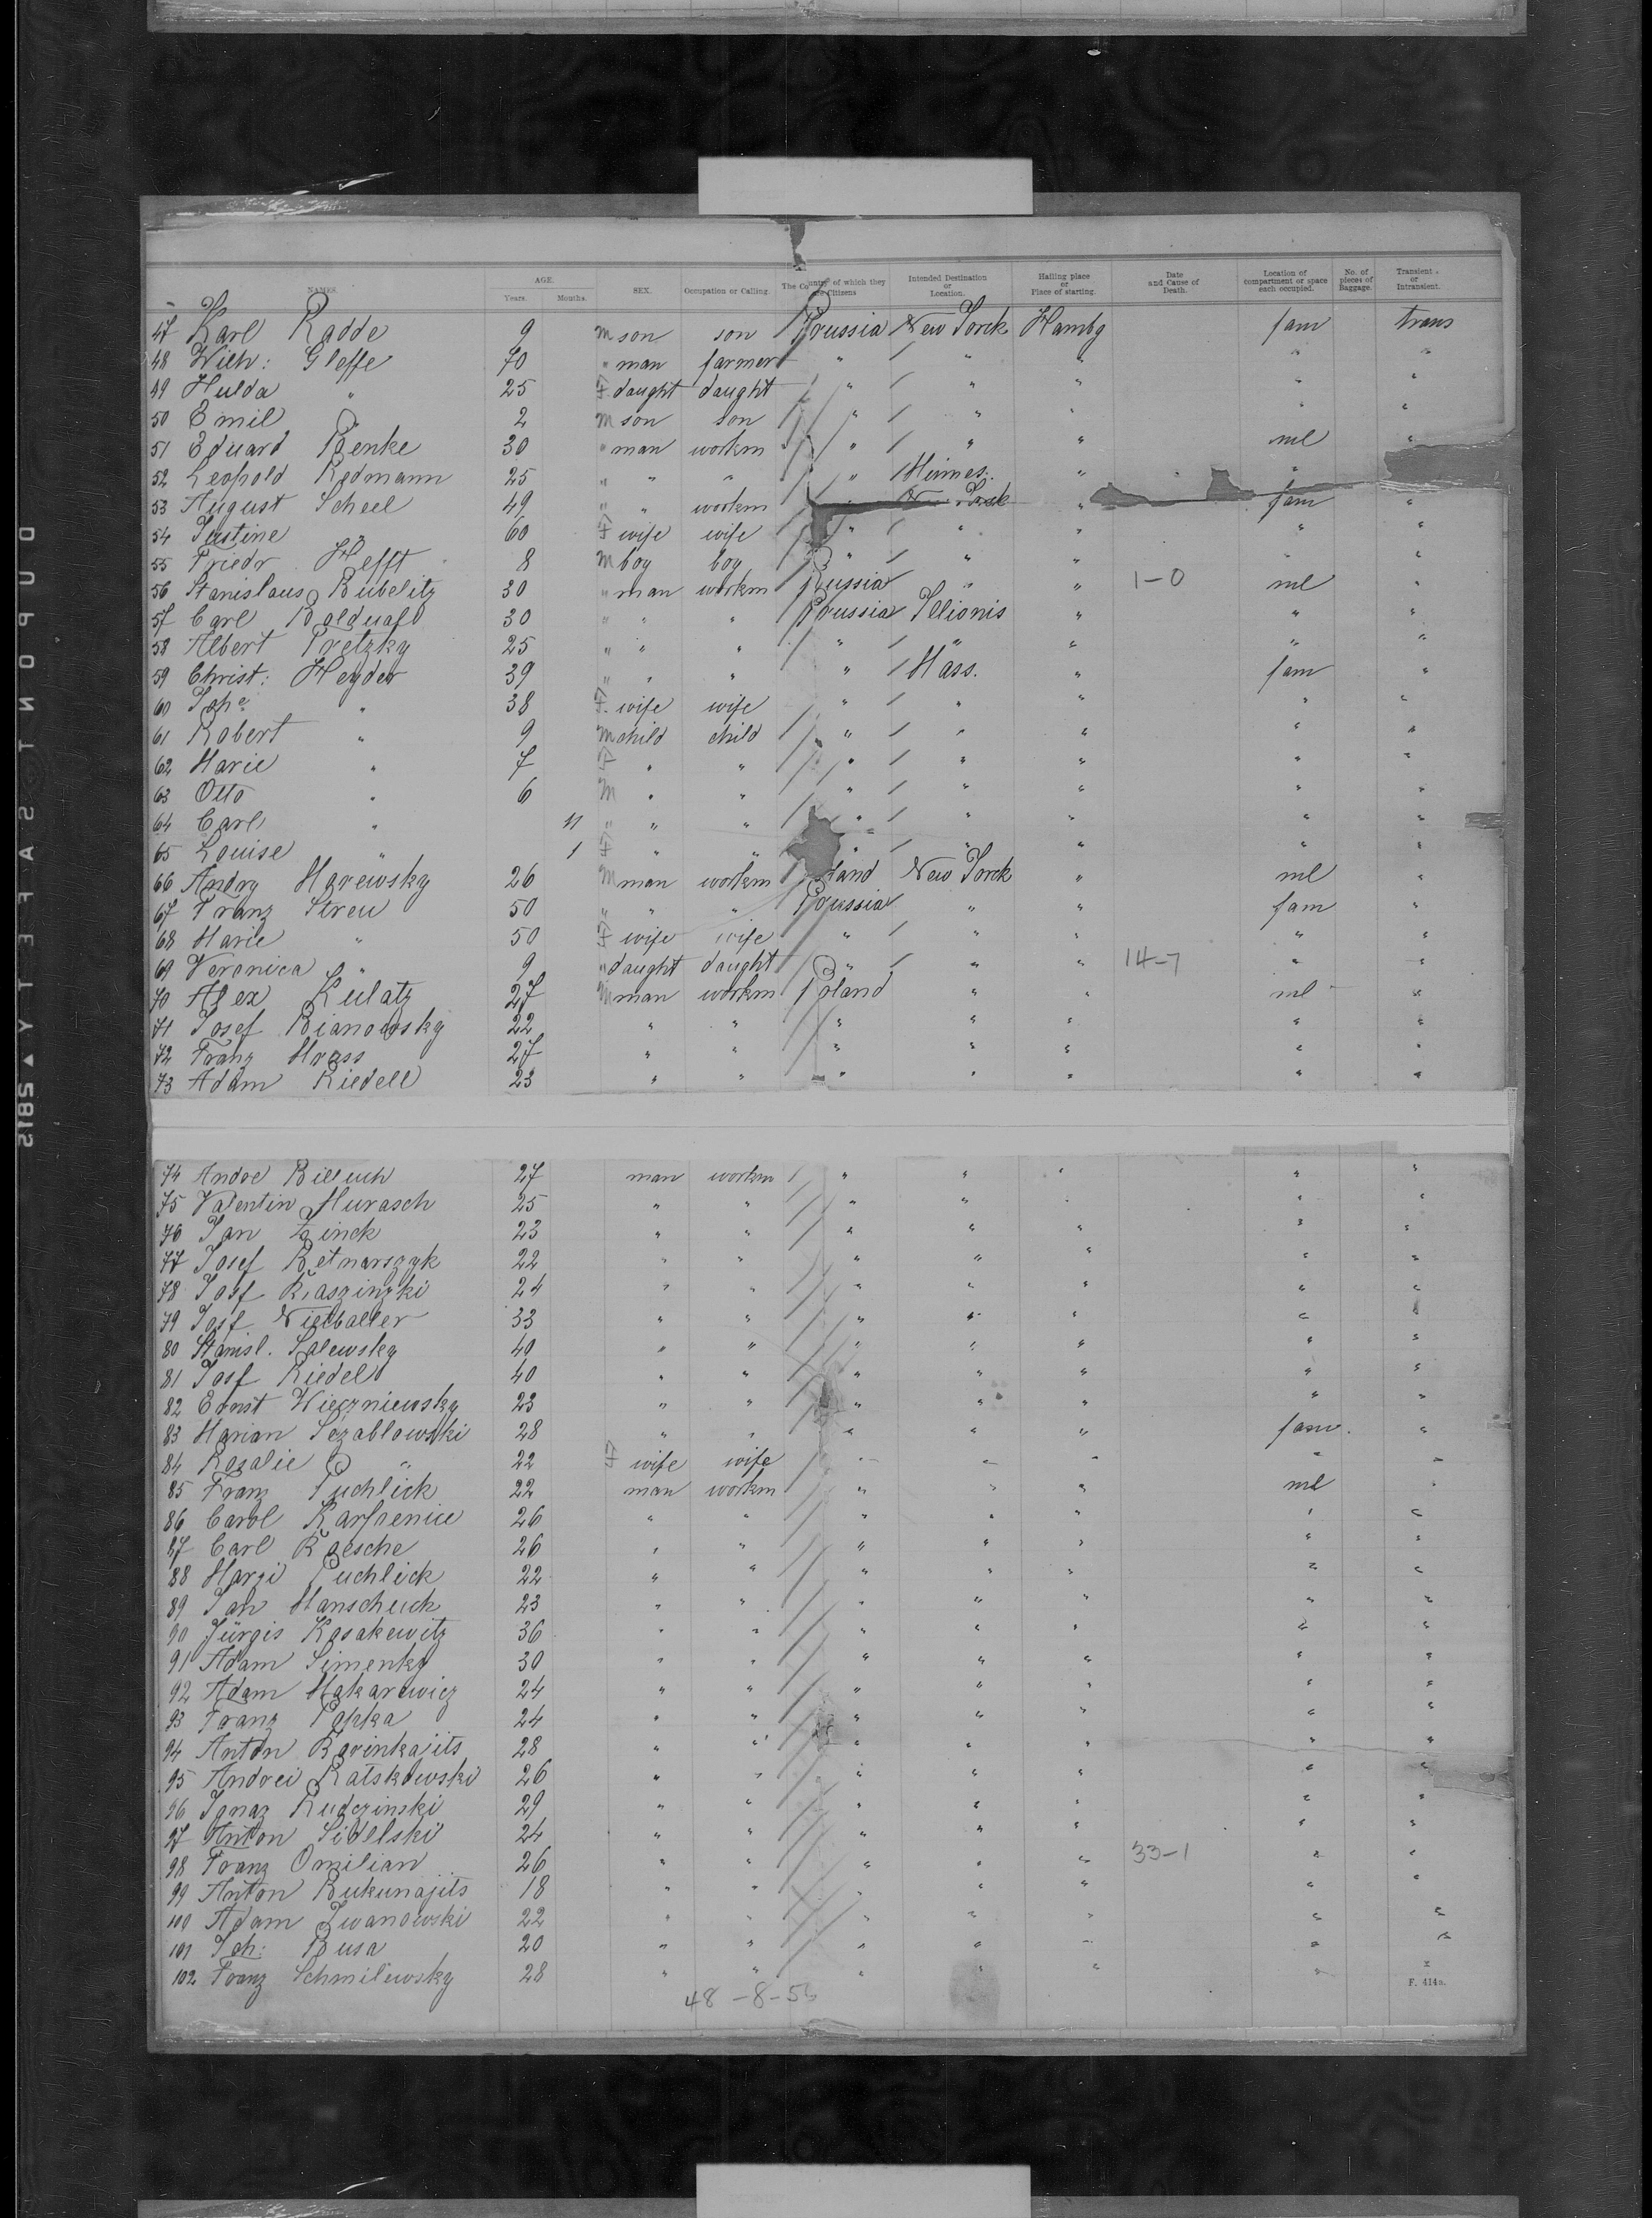 NAMES. AGE. Years. Months. SEX. Occupation or Calling. The Country of which they are Citizens Intended Destination or Location. Hailing place or Place of starting. Date and Cause of Death. Location of compartment or space each occupied. No. of pieces of Baggage. Transient or Intransient.
47 Karl Radde 9 M son son Prussia New Yorck Hambg fam trans
48 Wilh: Gleffe 70 " man farmer " " " " "
49 Hulda " 25 F daught daught " " " " "
50 Emil " 2 M son son " " " " "
51 Eduard Benke 30 " man workm " " " ml "
52 Leopold Redmann 25 " " " " " "
53 August Scheel 49 " " workm " N Yorck " fam "
54 Justine " 60 F wife wife " " " " "
55 Friedr. Hefft 8 M boy boy " " " " "
56 Stanislaus Bubelitz 30 " man workm Russia " " 1-0 ml "
57 Carl 30 " " " Prussia Illionis " " "
58 Albert Pretzky 25 " " " " " " " "
59 Christ: Heyder 39 " " " " Mass. " fam "
60 Johe " 38 F. wife wife " " " " "
61 Robert " 9 M child child " " " " "
62 Marie " 7 F " " " " " " "
63 Otto " 6 M " " " " " " "
64 Carl " 11 " " " " " " " "
65 Louise " 1 F " " " " " " "
66 Andry Marewsky 26 M man workm land New Yorck " ml "
67 Franz Streu 50 " " " Prussia " " fam "
68 Marie " 50 F wife wife " " " " "
69 Veronica " 9 " daught daught " " " 14-7 " "
70 Alex Kulatz 27 M man workm Poland " " ml "
71 Josef Bianowsky 22 " " " " " " "
72 Franz Mross 27 " " " " " " "
73 Adam Riedell 23 " " " " " " "
74 Andre 27 man workm " " " " "
75 Valentin Murasch 25 " " " " " " "
76 Jan Zinck 23 " " " " " " "
77 Josef Betnarszyk 22 " " " " " " "
78 Josf 24 " " " " " " "
79 Josf 33 " " " " " " "
80 Stanisl. Salewsky 40 " " " " " " "
81 Josf Riedel 40 " " " " " " "
82 Ernst Wiezniewsky 23 " " " " " " "
83 Marian Sczablowski 28 " " " " " fam. "
84 Rosalie " 22 F wife wife " " " " "
85 Franz Puchlick 22 man workm " " " ml "
86 Carol 26 " " " " " " "
87 Carl Roesche 26 " " " " " " "
88 Puchlick 22 " " " " " " "
89 Jan Manschuck 23 " " " " " " "
90 Jürgis Kasakewitz 36 " " " " " " "
91 Adam Simenky 30 " " " " " " "
92 Adam Makarewicz 24 " " " " " " "
93 Franz Papka 24 " " " " " " "
94 Anton 28 " " " " " " "
95 Andrei Ratskowski 26 " " " " " " "
96 Ignaz Rudczinski 29 " " " " " " "
97 Anton Sidelski 24 " " " " " " "
98 Franz Omilian 26 " " " " " 33-1 " "
99 Anton Bukunajits 18 " " " " " " "
100 Adam Iwanowski 22 " " " " " " "
101 Joh: Busa 20 " " " " " " "
102 Franz Schmilewsky 28 " " " " " " "
F. 414a.
48-8-56